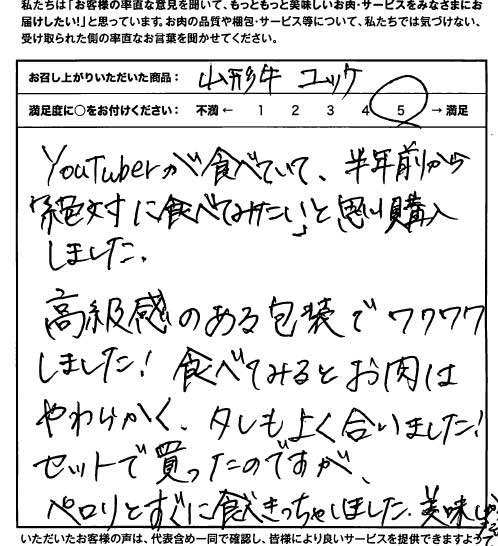 私たちは「お客様の率直な意見を聞いて、もっともっと美味しいお肉・サービスをみなさまにお
届けしたい!」と思っています。お肉の品質や梱包・サービス等について、私たちでは気づけない、
受け取られた側の率直なお言葉を聞かせてください。
お召し上がりいただいた商品： 山形牛 ユッケ
満足度に○をお付けください： 不満 ← 1 2 3 4 5 → 満足
YouTuberが食べていて、半年前から
「絶対に食べてみたい」と思い購入
しました.
高級感のある包装でワクワク
しました! 食べてみるとお肉は
やわらかく、タレもよく合いました!
セットで買ったのですが、
ペロリとすぐに食べきっちゃいました. 美味し
いただいたお客様の声は、代表含め一同で確認し、皆様により良いサービスを提供できますよう